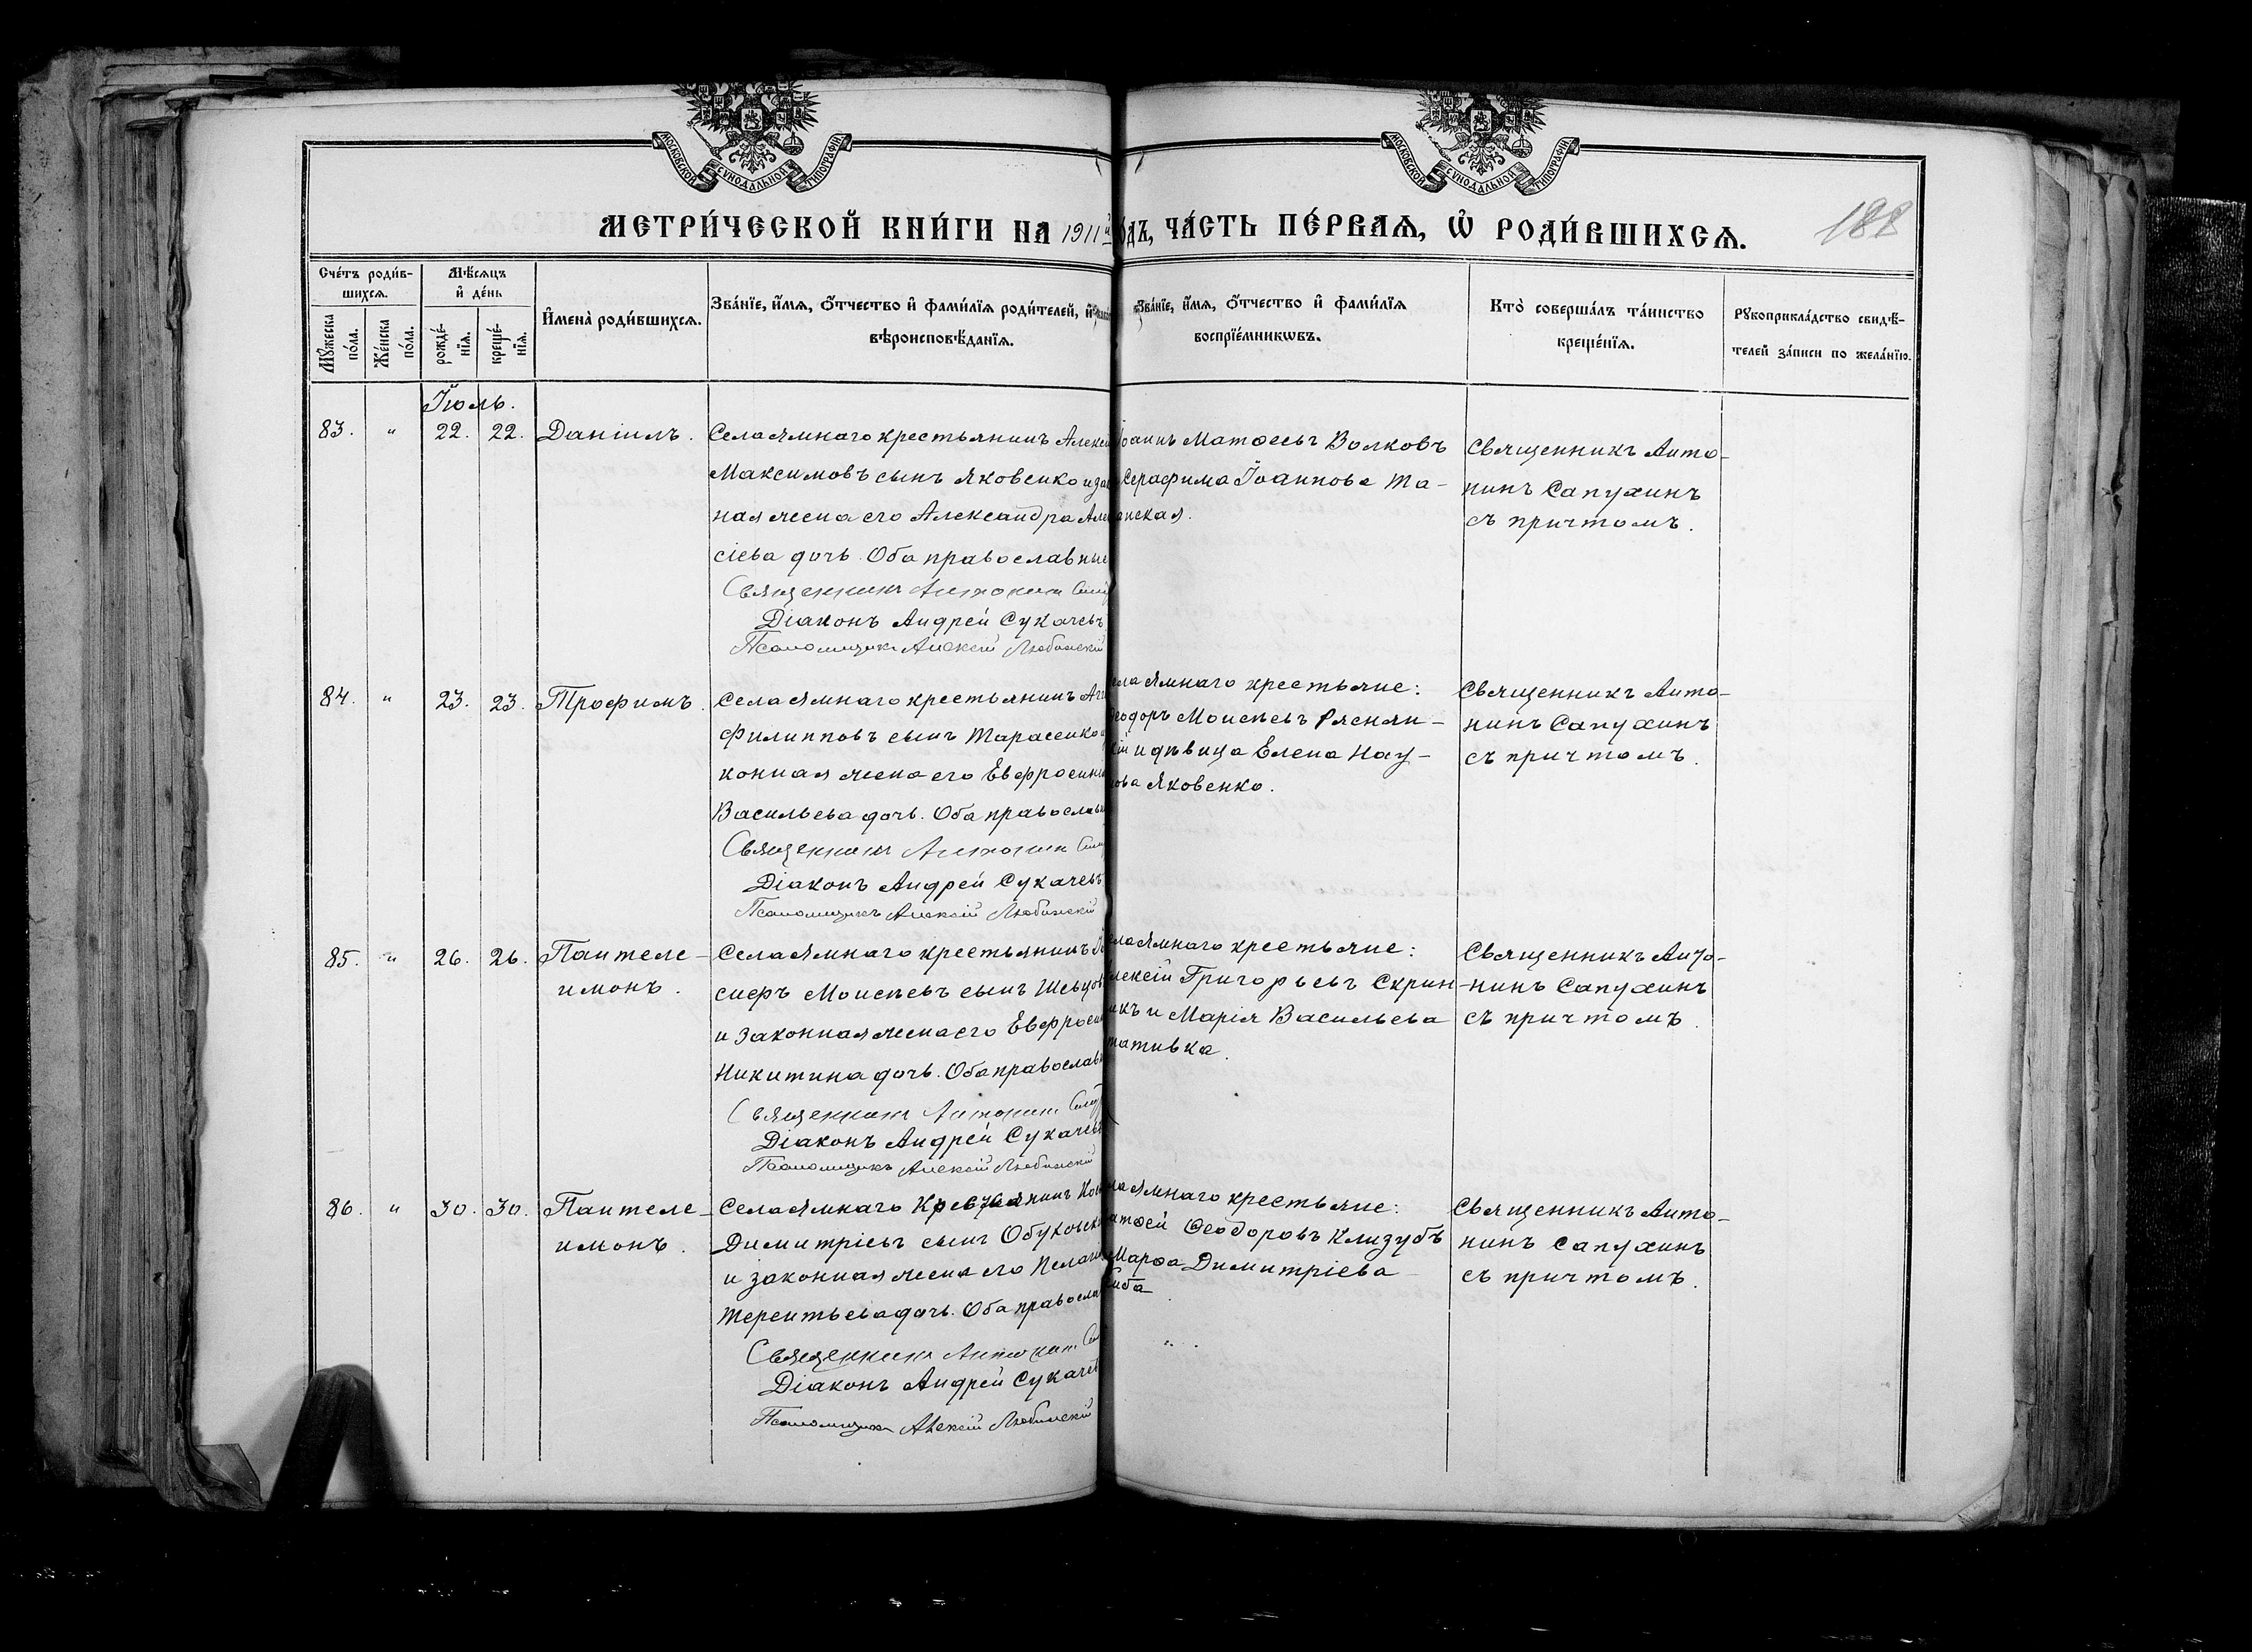 МОСКОВСКОЙ СѴНОДАЛЬНОЙ ТИПОГРАФІИ
МОСКОВСКОЙ СѴНОДАЛЬНОЙ ТИПОГРАФІИ
МЕТРИ́ЧЕСКОЙ КНИ́ГИ НА 1911й
ЧА́СТЬ ПЕ́РВАѦ, Ѡ҆ РОДИ́ВШИХСѦ.
188
Сче́тъ роди́в-
шихсѧ.
Мꙋ́жеска по́ла.
Же́нска по́ла.
Мѣ́сѧцъ
и҆ де́нь
рожде́-
нїѧ.
креще́-
нїѧ.
И҆мена̀ роди́вшихсѧ.
Зва́нїе, и҆́мѧ, ѻ҆́тчество и҆ фами́лїѧ роди́телей, и҆
вѣроисповѣ́данїѧ.
Зва́нїе, и҆́мѧ, ѻ҆́тчество и҆ фами́лїѧ
воспрїе́мникѡвъ.
Кто̀ соверша́лъ та́инство
креще́нїѧ.
Рꙋкоприкла́дство свидѣ́-
телей за́писи по жела́нїю.
Іюль.
83. " 22. 22. Даніилъ.
Села Ямнаго крестьянинъ Алексѣ
Максимовъ сынъ Яковенко и за
ная жена его Александра Алек
сіева дочь. Оба православные
Священникъ Антонинъ
Діаконъ Андрей Сукачевъ
Псаломщикъ Алексій Любинскій
Іоаннъ Матѳеевъ Волковъ
Серафима Іоаннова Та-
анская.
Священникъ Анто-
нинъ Сапухинъ
съ причтомъ.
84. " 23. 23. Трофимъ.
Села Ямнаго крестьянинъ
Филипповъ сынъ Тарасенко
конная жена его Евфросинія
Васильева дочь. Оба православн
Священникъ Антонинъ
Діаконъ Андрей Сукачевъ
Псаломщикъ Алексій Любинскій
ела Ямнаго крестьяне:
еодоръ Моисеевъ Ряснян-
кій и дѣвица Елена Нау-
ова Яковенко.
Священникъ Анто-
нинъ Сапухинъ
съ причтомъ.
85. " 26. 26. Пантеле-
имонъ.
Села Ямнаго крестьянинъ
сифъ Моисеевъ сынъ Шевцов
и законная жена его Евфроси
Никитина дочь. Оба православ
Священникъ Антонинъ
Діаконъ Андрей Сукачевъ
Псаломщикъ Алексій Любинскій
ела Ямнаго крестьяне:
лексій Григорьевъ Скрин-
икъ и Марія Васильева
Священникъ Анто-
нинъ Сапухинъ
съ причтомъ.
86. " 30. 30. Пантеле-
имонъ.
Села Ямнаго Крестьянинъ
Димитріевъ сынъ Обуховск
и законная жена его Пелагі
Терентьева дочь. Оба правосла
Священникъ Антонинъ
Діаконъ Андрей Сукачев
Псаломщикъ Алексій Любинскій
ла Ямнаго крестьяне:
атѳей Ѳеодоровъ Клизубъ
Марѳа Димитріева
Священникъ Анто-
нинъ Сапухинъ
съ причтомъ.